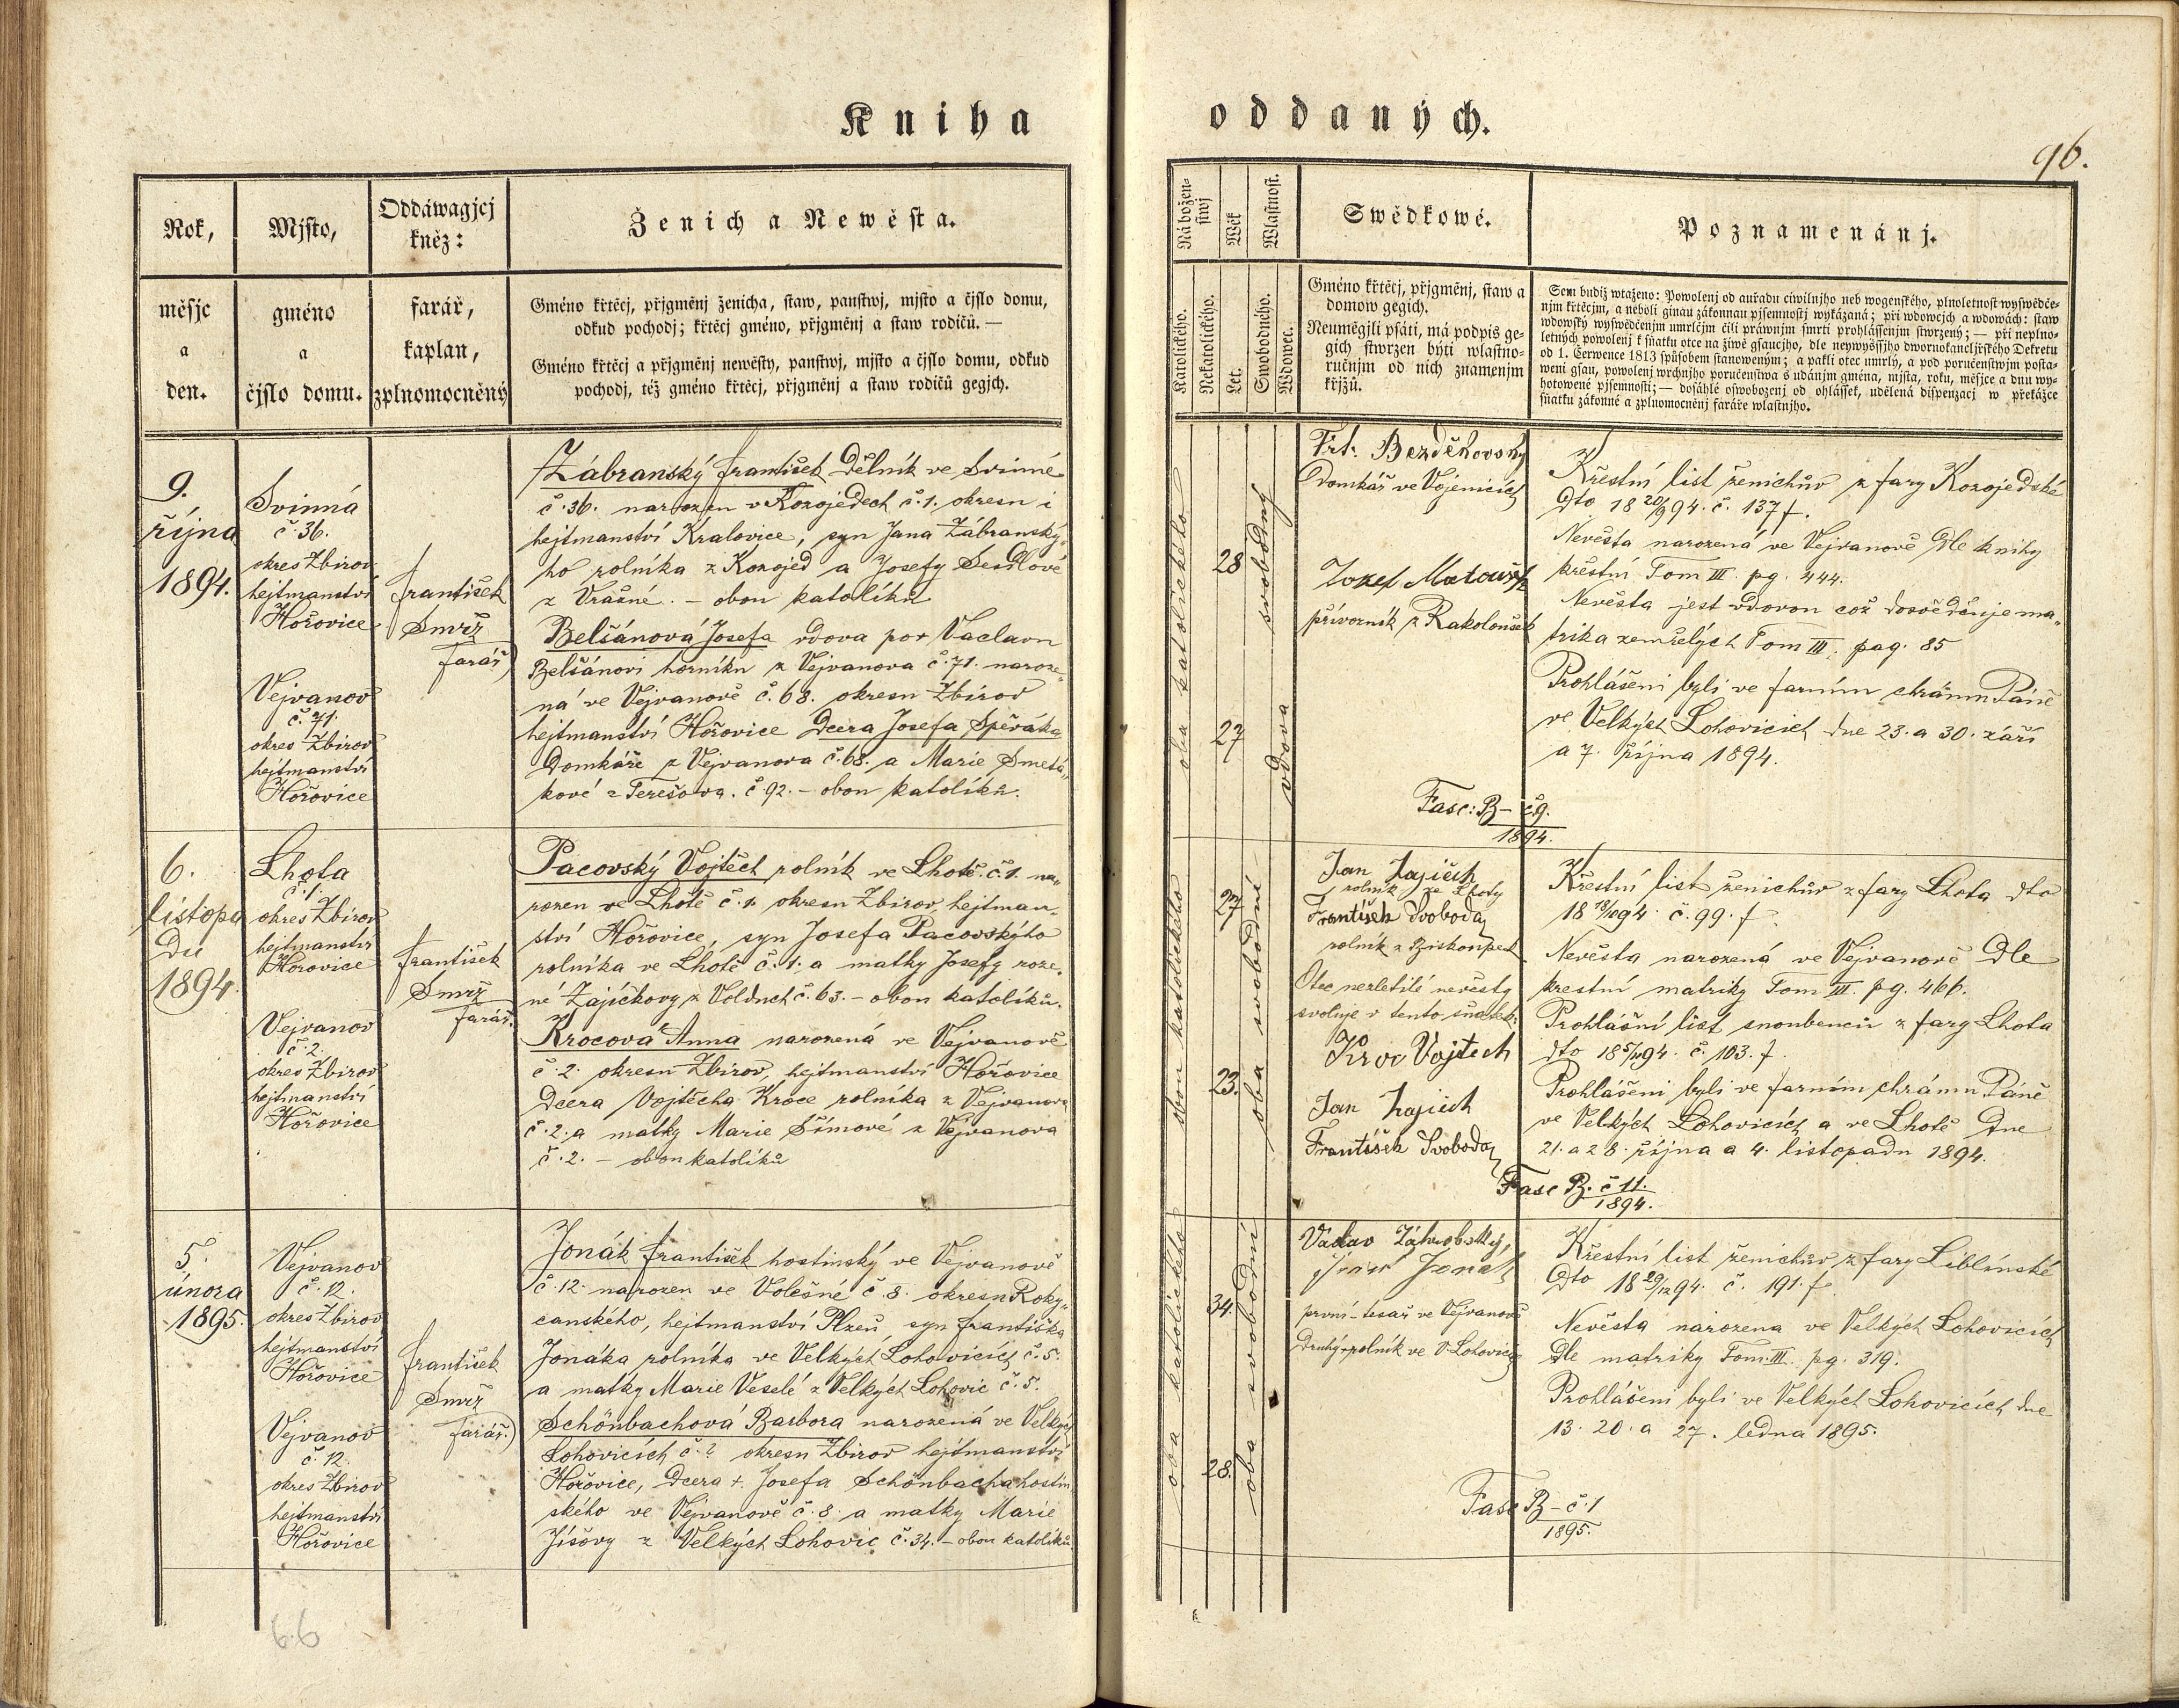 Kniha
oddaných.
96.
Rok,
měsjc
a
den.
Mjsto,
gméno
a
čjslo domu.
Oddáwagjcj
kněz:
farář,
kaplan,
zplnomocněný
Ženich a Newěsta.
Gméno křtěcj, přjgměnj ženicha, staw, panstwj, mjsto a čjslo domu,
odkud pochodj; křtěcj gméno, přjgměnj a staw rodičů. —
Gméno křtěcj a přjgměnj newěsty, panstwj, mjsto a čjslo domu, odkud
pochodj, též gméno křtěcj, přjgměnj a staw rodičů gegjch.
Nábožen-
stwj
Katolického.
Nekatolického.
Wěk
Let.
Wlastnost.
Swobodného.
Wdowec.
Swědkowé.
Gméno křtěcj, přjgměnj, staw a
domow gegich.
Neuměgjli psáti, má podpis ge-
gich stwrzen býti wlastno-
ručnjm od nich znamenjm
křjžů.
Poznamenánj.
Sem budiž wtaženo: Powolenj od auřadu ciwilnjho neb wogenského, plnoletnost wyswědče-
njm křtěcjm, a neboli ginau zákonnau pjsemnostj wykázaná; při wdowcjch a wdowách: staw
wdowský wyswědčenjm umrlčjm čili práwnjm smrti prohlássenjm stwrzený; — při neplno-
letných powolenj k sňatku otce na žiwě gsaucjho, dle neywyšsjho dwornokancljřského Dekretu
od 1. Července 1813 spůsobem stanoweným; a pakli otec umrlý, a pod poručenstwjm posta-
weni gsau, powolenj wrchnjho poručenstwa s udánjm gména, mjsta, roku, měsjce a dnu wy-
hotowené pjsemnosti; — dosáhlé oswobozenj od ohlássek, udělená dispenzacj w překážce
sňatku zákonné a zplnomocněnj faráře wlastnjho.
9.
října
1894.
Svinná
č. 36.
okres Zbirov
hejtmanství
Hořovice
Vejvanov
č. 71.
okres Zbirov
hejtmanství
Hořovice
František
Smrž
farář
Zábranský František dělník ve Svinné
č. 36. narozen v Kozojedech č. 1. okresu i
hejtmanství Kralovice, syn Jana Zábranský-
ho rolníka z Kozojed a Josefy Seidlové
z Vražné. – obou katolíků
Belšánová Josefa vdova po + Václavu
Belšánovi horníku z Vejvanova č. 71. naroze-
ná ve Vejvanově č. 68. okresu Zbirov
hejtmanství Hořovice dcera Josefa Spěváka
domkáře z Vejvanova č. 68. a Marie Smetá-
kové z Terešova. č 92. – obou katolíků.
oba katolického
28
27
svobodný
vdova
Frt. Bezděkovský
domkář ve Vojenicích
Josef Matouš
přívozník z Rakolous
Křestní list ženichův z fary Kozojedské
dto 18 20/9 94. č. 137 f.
Nevěsta narozená ve Vejvanově dle knihy
křestní Tom III. pg. 444.
Nevěsta jest vdovou což dosvědčuje ma-
trika zemřelých Tom III. pag. 85
Prohlášeni byli ve farním chrámu Páně
ve Velkých Lohovicích dne 23. a 30. září
a 7. října 1894.
Fasc: B – č 9.
1894.
6.
listopa
du
1894.
Lhota
č. 1.
okres Zbirov
hejtmanství
Hořovice
Vejvanov
č. 2.
okres Zbirov
hejtmanství
Hořovice
František
Smrž
farář.
Pacovský Vojtěch rolník ve Lhotě č. 1. na-
rozen ve Lhotě č. 1. okresu Zbirov hejtman-
ství Hořovice, syn Josefa Pacovskýho
rolníka ve Lhotě č. 1. a matky Josefy roze-
né Zajíčkovy z Volduch č. 63. – obou katolíků.
Krocová Anna narozená ve Vejvanově
č. 2. okresu Zbirov, hejtmanství Hořovice
dcera Vojtěcha Kroce rolníka z Vejvanova
č. 2. a matky Marie Šímové z Vejvanova
č. 2. – obou katolíků
obou katolického
27
23.
oba svobodní
Jan Zajíček
rolník ze Lhoty
František Svoboda
rolník z Biskoupek
Otec nezletilé nevěsty
svoluje v tento sňatek:
Kroc Vojtěch
Jan Zajíček
František Svoboda
Křestní list ženichův z fary Lhota dto
18 18/10 94. č. 99. f.
Nevěsta narozená ve Vejvanově dle
křestní matriky Tom III. pg. 466.
Prohlášní list snoubenců z fary Lhota
dto 18 5/11 94. č. 103. f.
Prohlášeni byli ve farním chrámu Páně
ve Velkých Lohovicích a ve Lhotě dne
21. a 28. října a 4. listopadu 1894.
Fasc B. č 11.
1894.
5.
února
1895.
Vejvanov
č. 12.
okres Zbirov
hejtmanství
Hořovice
Vejvanov
č. 12.
okres Zbirov
hejtmanství
Hořovice
František
Smrž
farář.
Jonák František hostinský ve Vejvanově
č. 12. narozen ve Volešné č. 8. okresu Roky-
canského, hejtmanství Plzeň, syn Františka
Jonáka rolníka ve Velkých Lohovicích č. 5.
a matky Marie Veselé z Velkých Lohovic č. 5.
Schönbachová Barbora narozená ve Velkých
Lohovicích č. 2 okresu Zbirov hejtmanství
Hořovice, dcera + Josefa Schönbacha hostin
ského ve Vejvanově č. 8. a matky Marie
Jíšovy z Velkých Lohovic č. 34. – obou katolíků
oba katolického
34.
28.
oba svobodní
Václav
Jonák
první – tesař ve Vejvanově
druhý – rolník ve V. Lohovicích
Křestní list ženichův z fary Liblínské
dto 18 29/12 94. č. 191. f.
Nevěsta narozena ve Velkých Lohovicích
dle matriky Tom. III. pg. 319.
Prohlášeni byli ve Velkých Lohovicích dne
13. 20. a 27. ledna 1895.
Fasc B – č. 1
1895.
66